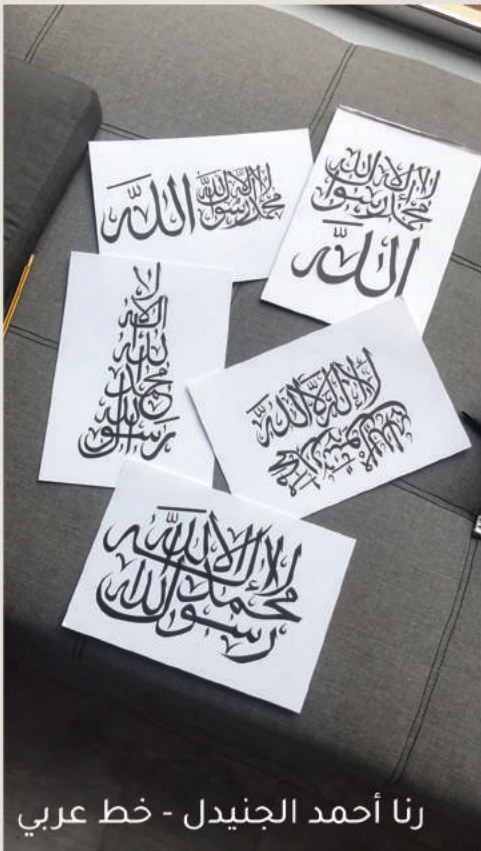 لا إله إلا الله
محمد رسول الله
لا إله إلا الله
محمد رسول
الله
لا
إله إلا
الله
محمد
رسول الله
لا إله إلا الله
محمد رسول الله
لا إله إلا الله
محمد
رسول الله
رنا أحمد الجنيدل - خط عربي